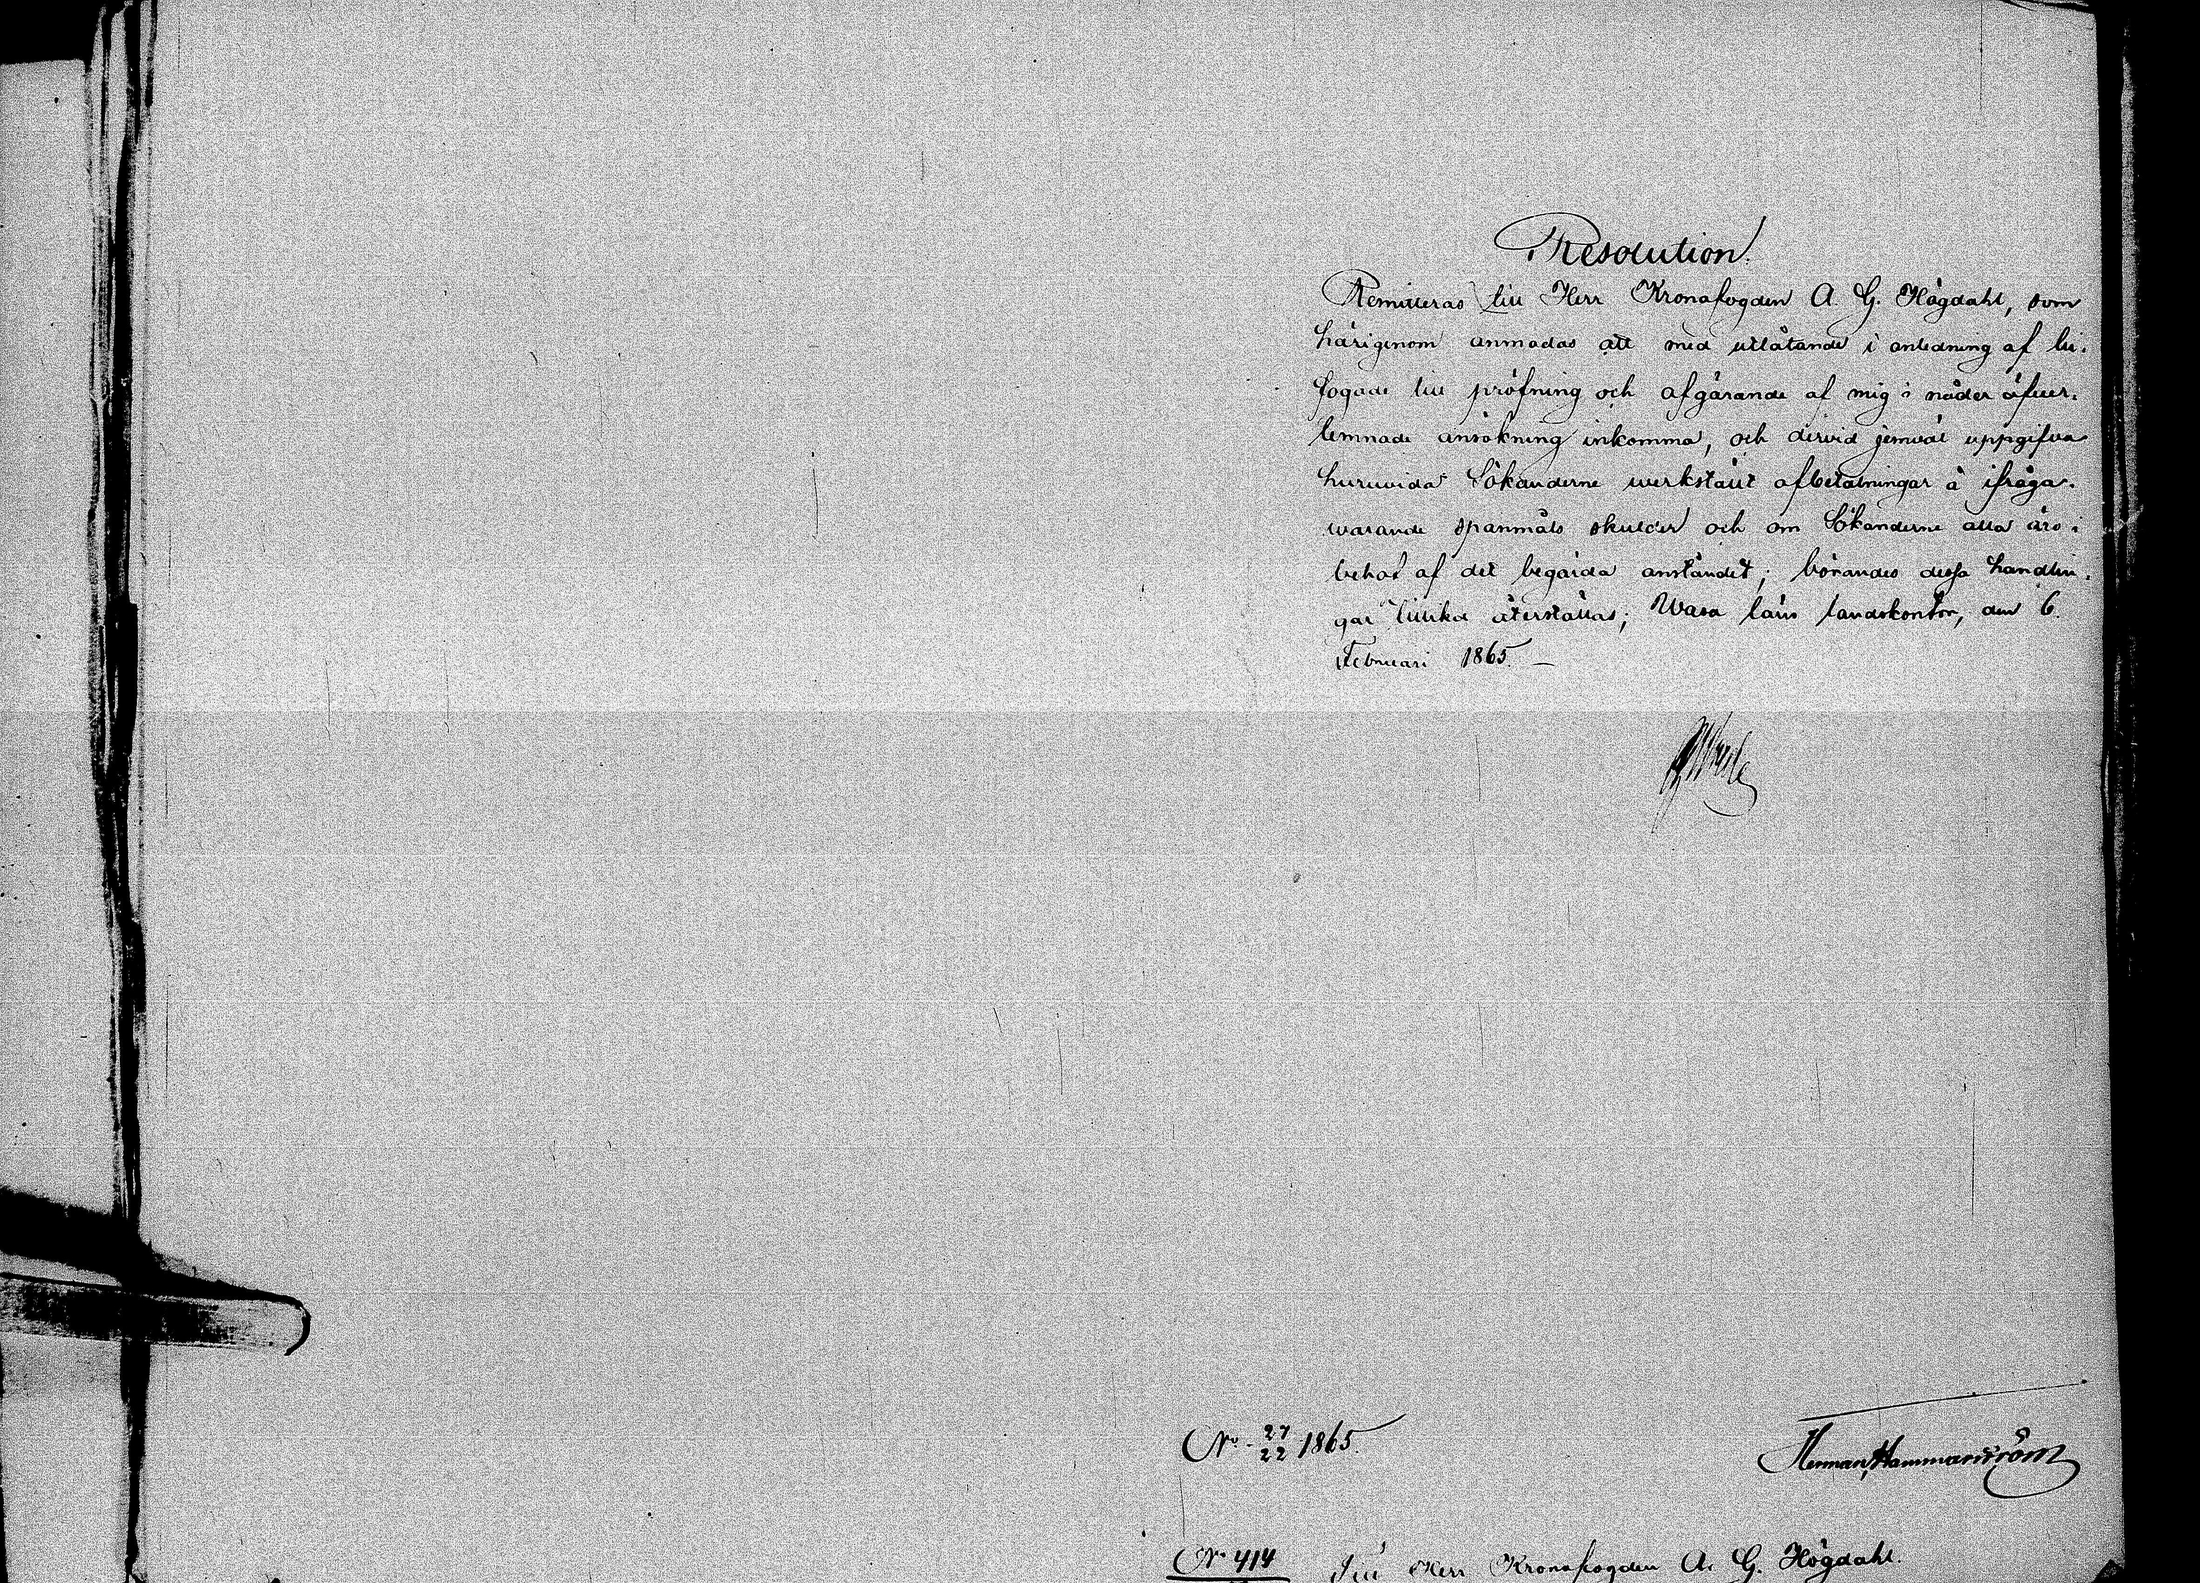 Resolution.
Remitteras till Herr Kronofogden A. G. Högdahl, som
härigenom anmodas att med utlåtande i anledning af bi-
fogade till pröfning och afgörande af mig i nåder öfver-
lemnade ansökning inkomma, och dervid jemväl uppgifva
huruvida Sökanderne werkställt afbetalningar å ifråga-
warande spanmåls skulder och om Sökanderne alla äro i
behof af det begärda anståndet; börandes dessa handlin-
gar tillika återställas; Wasa läns landskontor, den 6
Februari 1865. —
No. 27/22 1865.
Herman Hammarström
No 414 Till Herr Kronofogden A. G. Högdahl.